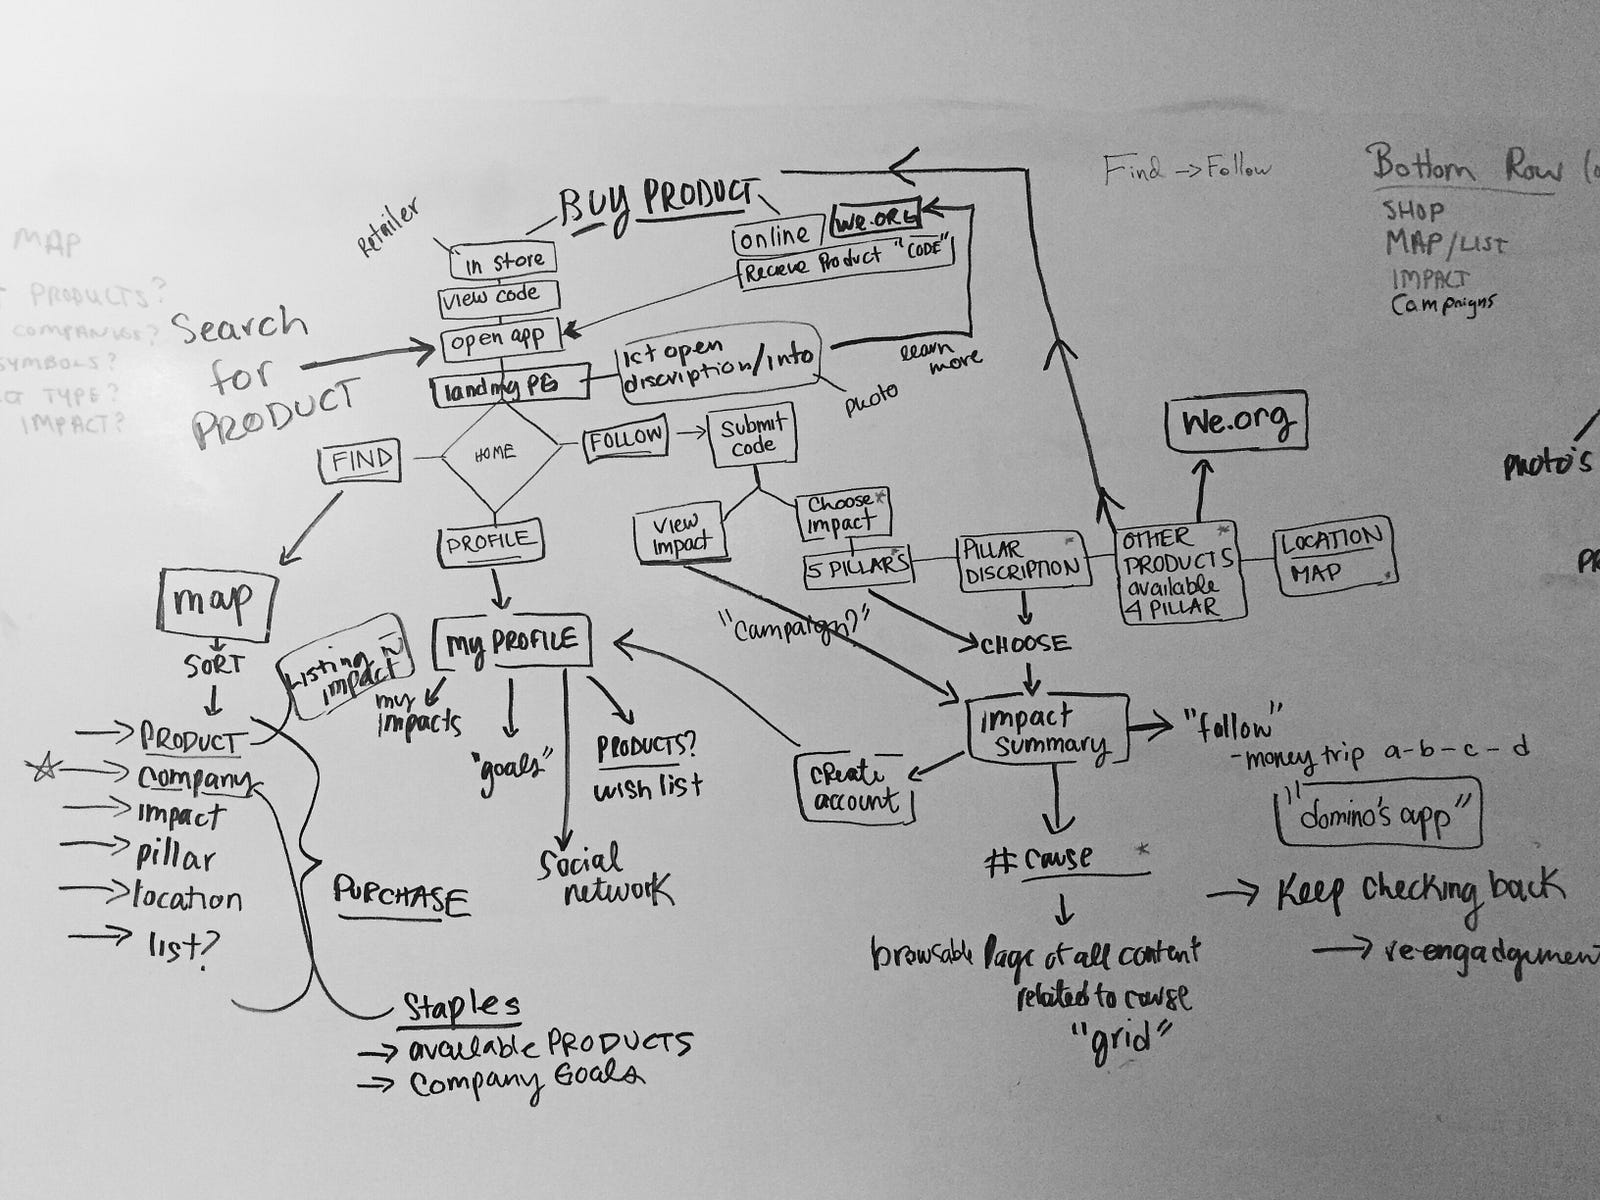 Find → Follow
Bottom Row
SHOP
MAP/LIST
IMPACT
Campaigns
MAP
PRODUCTS?
COMPANIES?
SYMBOLS?
TYPE?
IMPACT?
Retailer
BUY PRODUCT
in store
view code
open app
landing PG
online
We.ORG
Recieve Product "CODE"
1st open
discription/into
learn
more
photo
Search
for
PRODUCT
HOME
FIND
FOLLOW
Submit
code
PROFILE
View
impact
Choose*
impact
5 PILLARS
PILLAR
DISCRIPTION
OTHER
PRODUCTS
available
4 PILLAR
LOCATION
MAP
We.org
photo's
map
SORT
Listing
impact
PRODUCT
company
impact
pillar
location
list?
PURCHASE
Staples
→ available PRODUCTS
→ Company Goals
My PROFILE
my
impacts
"goals"
social
network
PRODUCTS?
wish list
"Campaign?"
CHOOSE
impact
summary
create
account
"follow"
-money trip a-b-c-d
"domino's app"
# cause *
browsable Page of all content
related to cause
"grid"
→ Keep checking back
→ re-engadgement